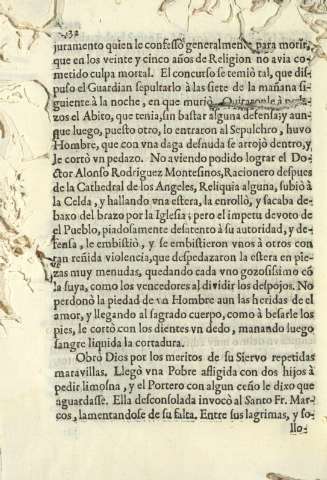 32
juramento quien le confessò generalmente para morir,
que en los veinte y cinco años de Religion no avia co-
metido culpa mortal. El concurso se temiò tal, que dis-
puso el Guardian sepultarlo à las siete de la mañana si-
guiente à la noche, en que muriò. Quitaronle à peda-
zos el Abito, que tenia, sin bastar alguna defensa; y aun-
que luego, puesto otro, lo entraron al Sepulchro, huvo
Hombre, que con vna daga desnuda se arrojò dentro, y
le cortò vn pedazo. No aviendo podido lograr el Do-
ctor Alonso Rodriguez Montesinos, Racionero despues
de la Cathedral de los Angeles, Reliquia alguna, subiò à
la Celda, y hallando vna estera, la enrollò, y sacaba de-
baxo del brazo por la Iglesia; pero el impetu devoto de
el Pueblo, piadosamente desatento à su autoridad, y de-
fensa, le embistiò, y se embistieron vnos à otros con
tan reñida violencia, que despedazaron la estera en pie-
zas muy menudas, quedando cada vno gozosissimo cõ
la suya, como los vencedores al dividir los despojos. No
perdonò la piedad de vn Hombre aun las heridas de el
amor, y llegando al sagrado cuerpo, como à besarle los
pies, le cortò con los dientes vn dedo, manando luego
sangre liquida la cortadura.
Obrò Dios por los meritos de su Siervo repetidas
maravillas. Llegò vna Pobre afligida con dos hijos à
pedir limosna, y el Portero con algun ceño le dixo que
aguardasse. Ella desconsolada invocò al Santo Fr. Mar-
cos, lamentandose de su falta. Entre sus lagrimas, y so-
llo-